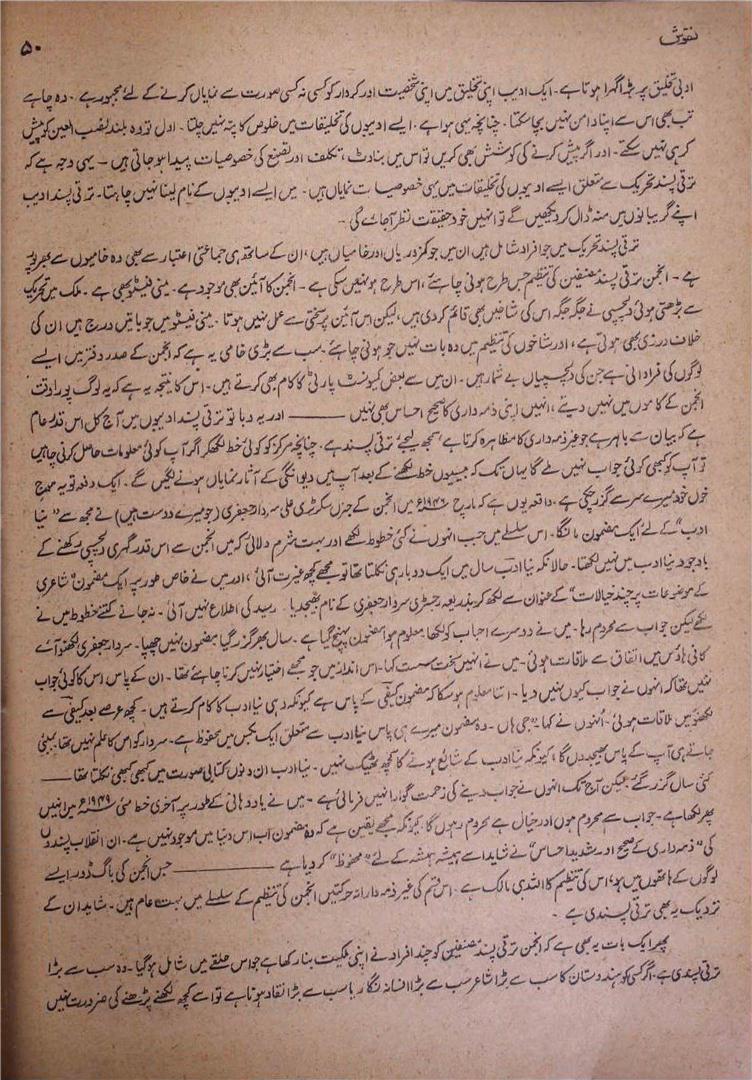 نقوش
۵۰
ادبی تخلیق پر بڑا گہرا ہوتا ہے۔ ایک ادیب اپنی تخلیق میں اپنی شخصیت اور کردار کو کسی نہ کسی صورت سے نمایاں کرنے کے لئے مجبور ہے۔ وہ چاہے
تب بھی اس سے اپنا دامن نہیں بچا سکتا۔ چنانچہ یہی ہوا ہے۔ ایسے ادیبوں کی تخلیقات میں خلوص کا پتہ نہیں چلتا۔ اول تو وہ بلند نصب العین کو پیش
کر ہی نہیں سکتے۔ اور اگر پیش کرنے کی کوشش بھی کریں تو اس میں بناوٹ، تکلف اور تصنع کی خصوصیات پیدا ہو جاتی ہیں۔ یہی وجہ ہے کہ
ترقی پسند تحریک سے متعلق ایسے ادیبوں کی تخلیقات میں یہی خصوصیات نمایاں ہیں۔ میں ایسے ادیبوں کے نام لینا نہیں چاہتا۔ ترقی پسند ادیب
اپنے گریبانوں میں منہ ڈال کر دیکھیں گے تو انہیں خود حقیقت نظر آجائے گی۔
ترقی پسند تحریک میں جو افراد شامل ہیں ان میں جو کمزوریاں اور خامیاں ہیں، ان کے ساتھ ہی جماعتی اعتبار سے بھی وہ خامیوں سے بھرپور
ہے۔ انجمن ترقی پسند مصنفین کی تنظیم جس طرح ہونی چاہئے، اس طرح ہو نہیں سکی ہے۔ انجمن کا آئین بھی موجود ہے۔ مینی فیسٹو بھی ہے۔ ملک میں تحریک
سے بڑھتی ہوئی دلچسپی نے جگہ جگہ اس کی شاخیں بھی قائم کر دی ہیں، لیکن اس آئین پر سختی سے عمل نہیں ہوتا۔ مینی فیسٹو میں جو باتیں درج ہیں ان کی
خلاف ورزی بھی ہوتی ہے، اور شاخوں کی تنظیم میں وہ بات نہیں جو ہونی چاہئے۔ سب سے بڑی خامی یہ ہے کہ انجمن کے صدر دفتر میں ایسے
لوگوں کی فراوانی ہے جن کی دلچسپیاں بے شمار ہیں۔ ان میں سے بعض کمیونسٹ پارٹی کا کام بھی کرتے ہیں۔ اس کا نتیجہ یہ ہے کہ یہ لوگ پورا وقت
انجمن کے کاموں میں نہیں دیتے، انہیں اپنی ذمہ داری کا صحیح احساس بھی نہیں ——— اور یہ وبا تو ترقی پسند ادیبوں میں آج کل اس قدر عام
ہے کہ بیان سے باہر ہے جو غیر ذمہ داری کا مظاہرہ کرتا ہے سمجھ لیجئے ترقی پسند ہے۔ چنانچہ مرکز کو کوئی خط لکھ کر اگر آپ کوئی معلومات حاصل کرنی چاہیں
تو آپ کو کبھی کوئی جواب نہیں ملے گا یہاں تک کہ بیسیوں خط لکھنے کے بعد آپ میں دیوانگی کے آثار نمایاں ہونے لگیں گے۔ ایک دفعہ تو یہ موج
خوں خود میرے سر سے گزر چکی ہے۔ واقعہ یوں ہے کہ مارچ ۱۹۴۶ء میں انجمن کے جنرل سکرٹری علی سردار جعفری (جو میرے دوست ہیں) نے مجھ سے "نیا
ادب" کے لئے ایک مضمون مانگا۔ اس سلسلے میں جب انہوں نے کئی خطوط لکھے اور بہت شرم دلائی کہ میں انجمن سے اس قدر گہری دلچسپی رکھنے کے
باوجود نیا ادب میں نہیں لکھتا۔ حالانکہ نیا ادب سال میں ایک دو بار ہی نکلتا تھا تو مجھے کچھ غیرت آئی، اور میں نے خاص طور پر ایک مضمون "شاعری
کے موضوعات پر چند خیالات" کے عنوان سے لکھ کر بذریعہ رجسٹری سردار جعفری کے نام بھیجدیا۔ رسید کی اطلاع نہیں آئی۔ نہ جانے کتنے خطوط میں نے
لکھے لیکن جواب سے محروم رہا۔ میں نے دوسرے احباب کو لکھا، معلوم ہوا مضمون پہنچ گیا ہے۔ سال بھر گزر گیا مضمون نہیں چھپا۔ سردار جعفری لکھنؤ آئے
کافی ہاؤس میں اتفاق سے ملاقات ہوئی۔ میں نے انہیں سخت سست کہا۔ اس انداز میں جو مجھے اختیار نہیں کرنا چاہئے تھا۔ ان کے پاس اس کا کوئی جواب
نہیں تھا کہ انہوں نے جواب کیوں نہیں دیا۔ اتنا معلوم ہو سکا کہ مضمون کیفی کے پاس ہے کیونکہ وہی نیا ادب کا کام کرتے ہیں۔ کچھ عرصے بعد کیفی سے
لکھنؤ میں ملاقات ہوئی۔ انہوں نے کہا "جی ہاں۔ وہ مضمون میرے ہی پاس نیا ادب سے متعلق ایک بکس میں محفوظ ہے۔ سردار کو اس کا علم نہیں تھا بمبئی
جاتے ہی آپ کے پاس بھیجدوں گا، کیونکہ نیا ادب کے شائع ہونے کا کچھ ٹھیک نہیں۔ نیا ادب ان دنوں کتابی صورت میں کبھی کبھی نکلتا تھا ——
کئی سال گزر گئے لیکن آج تک انہوں نے جواب دینے کی زحمت گوارا نہیں فرمائی ہے۔ میں نے یاد دہانی کے طور پر آخری خط مئی ۱۹۴۹ء میں انہیں
پھر لکھا ہے۔ جواب سے محروم ہوں اور خیال ہے محروم رہوں گا، کیونکہ مجھے یقین ہے کہ وہ مضمون اب اس دنیا میں موجود نہیں ہے۔ ان انقلاب پسندوں
کی "ذمہ داری کے صحیح اور شدید احساس" نے شاید اسے ہمیشہ ہمیشہ کے لئے "محفوظ" کر دیا ہے ——— جس انجمن کی باگ ڈور ایسے
لوگوں کے ہاتھوں میں ہو، اس کی تنظیم کا اللہ ہی مالک ہے۔ اس قسم کی غیر ذمہ دارانہ حرکتیں انجمن کی تنظیم کے سلسلے میں بہت عام ہیں۔ شاید ان کے
نزدیک یہ بھی ترقی پسندی ہے۔
پھر ایک بات یہ بھی ہے کہ انجمن ترقی پسند مصنفین کو چند افراد نے اپنی ملکیت بنا رکھا ہے جو اس حلقے میں شامل ہو گیا۔ وہ سب سے بڑا
ترقی پسندی ہے۔ اگر کسی کو ہندوستان کا سب سے بڑا شاعر سب سے بڑا افسانہ نگار یا سب سے بڑا نقاد ہونا ہے تو اسے کچھ لکھنے پڑھنے کی ضرورت نہیں